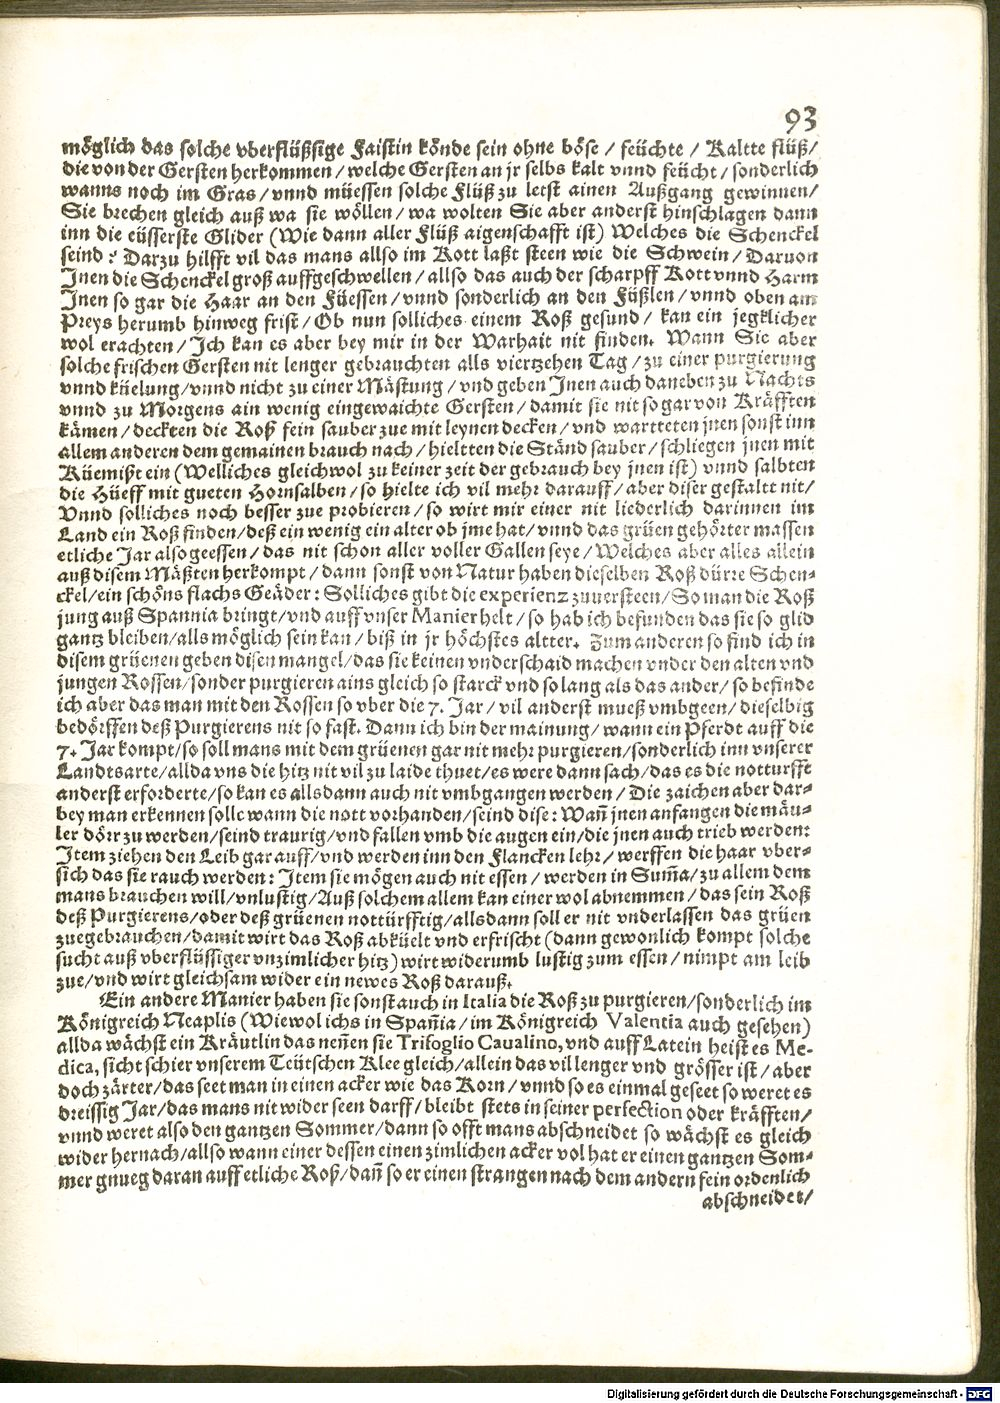 93
möglich das solche vberflüßsige Faistin könde sein ohne böse / feüchte / Kaltte flüß/
die von der Gersten herkommen / welche Gersten an jr selbs kalt vnnd feücht / sonderlich
wanns noch im Gras / vnnd müessen solche Flüß zu letst ainen Außgang gewinnen/
Sie brechen gleich auß wa sie wöllen / wa wolten Sie aber anderst hinschlagen dann
inn die eüsserste Glider (Wie dann aller Flüß aigenschafft ist) Welches die Schenckel
seind? Darzu hilfft vil das mans allso im Kott laßt steen wie die Schwein / Daruon
Jnen die Schenckel groß auffgeschwellen / allso das auch der scharpff Kott vnnd Harm
Jnen so gar die Haar an den Füessen / vnnd sonderlich an den Füßlen / vnnd oben am
Preys herumb hinweg frist / Ob nun solliches einem Roß gesund / kan ein jegklicher
wol erachten / Jch kan es aber bey mir in der Warhait nit finden. Wann Sie aber
solche frischen Gersten nit lenger gebrauchten alls viertzehen Tag / zu einer purgierung
vnnd küelung / vnnd nicht zu einer Mästung / vnd geben Jnen auch daneben zu Nachts
vnnd zu Morgens ain wenig eingewaichte Gersten / damit sie nit so gar von Kräfften
kämen / deckten die Roß fein sauber zue mit leynen decken / vnd wartteten jnen sonst inn
allem anderen dem gemainen brauch nach / hieltten die Ständ sauber / schliegen jnen mit
Küemißt ein (Welliches gleichwol zu keiner zeit der gebrauch bey jnen ist) vnnd salbten
die Hüeff mit gueten Hornsalben / so hielte ich vil mehr darauff / aber diser gestaltt nit/
Vnnd solliches noch besser zue probieren / so wirt mir einer nit liederlich darinnen im
Land ein Roß finden / deß ein wenig ein alter ob jme hat / vnnd das grüen gehörter massen
etliche Jar also geessen / das nit schon aller voller Gallen seye / Welches aber alles allein
auß disem Mäßten herkompt / dann sonst von Natur haben dieselben Roß dürre Schen-
ckel / ein schöns flachs Geäder: Solliches gibt die experienz zuuersteen / So man die Roß
jung auß Spannia bringt / vnd auff vnser Manier helt / so hab ich befunden das sie so glid
gantz bleiben / alls möglich sein kan / biß in jr höchstes altter. Zum anderen so find ich in
disem grüenen geben disen mangel / das sie keinen vnderschaid machen vnder den alten vnd
jungen Rossen / sonder purgieren ains gleich so starck vnd so lang als das ander / so befinde
ich aber das man mit den Rossen so vber die 7. Jar / vil anderst mueß vmbgeen / dieselbig
bedörffen deß Purgierens nit so fast. Dann ich bin der mainung / wann ein Pferdt auff die
7. Jar kompt / so soll mans mit dem grüenen gar nit mehr purgieren / sonderlich inn vnserer
Landtsarte / allda vns die hitz nit vil zu laide thuet / es were dann sach / das es die notturfft
anderst erforderte / so kan es allsdann auch nit vmbgangen werden / Die zaichen aber dar-
bey man erkennen solle wann die nott vorhanden / seind dise: Wañ jnen anfangen die mäu-
ler dörr zu werden / seind traurig / vnd fallen vmb die augen ein / die jnen auch trieb werden:
Jtem ziehen den Leib gar auff / vnd werden inn den Flancken lehr / werffen die haar vber-
sich das sie rauch werden: Jtem sie mögen auch nit essen / werden in Sum̃a / zu allem dem
mans brauchen will / vnlustig / Auß solchem allem kan einer wol abnemmen / das sein Roß
deß Purgierens / oder deß grüenen nottürfftig / allsdann soll er nit vnderlassen das grüen
zuegebrauchen / damit wirt das Roß abküelt vnd erfrischt (dann gewonlich kompt solche
sucht auß vberflüssiger vnzimlicher hitz) wirt widerumb lustig zum essen / nimpt am leib
zue / vnd wirt gleichsam wider ein newes Roß darauß.
Ein andere Manier haben sie sonst auch in Italia die Roß zu purgieren / sonderlich im
Königreich Neaplis (Wiewol ichs in Spañia / im Königreich Valentia auch gesehen)
allda wächst ein Kräutlin das neñen sie Trifoglio Caualino, vnd auff Latein heist es Me-
dica, sicht schier vnserem Teütschen Klee gleich / allein das vil lenger vnd grösser ist / aber
doch zärter / das seet man in einen acker wie das Korn / vnnd so es einmal geseet so weret es
dreissig Jar / das mans nit wider seen darff / bleibt stets in seiner perfection oder kräfften/
vnnd weret also den gantzen Sommer / dann so offt mans abschneidet so wächst es gleich
wider hernach / allso wann einer dessen einen zimlichen acker vol hat er einen gantzen Som-
mer gnueg daran auff etliche Roß / dañ so er einen strangen nach dem andern fein ordenlich
abschneidet/
Digitalisierung gefördert durch die Deutsche Forschungsgemeinschaft - DFG